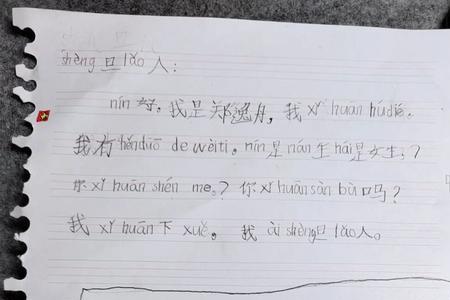 shèng旦lǎo人：
nín好，我是郑逸月，我xǐ huān húdié。
我有hěnduō de wèití。nín是nán生hái是女生；？
你xǐ huān shén me。？你xǐ huān sàn bà吗？
我xǐ huān下xuě。我ài shèng旦lǎo人。